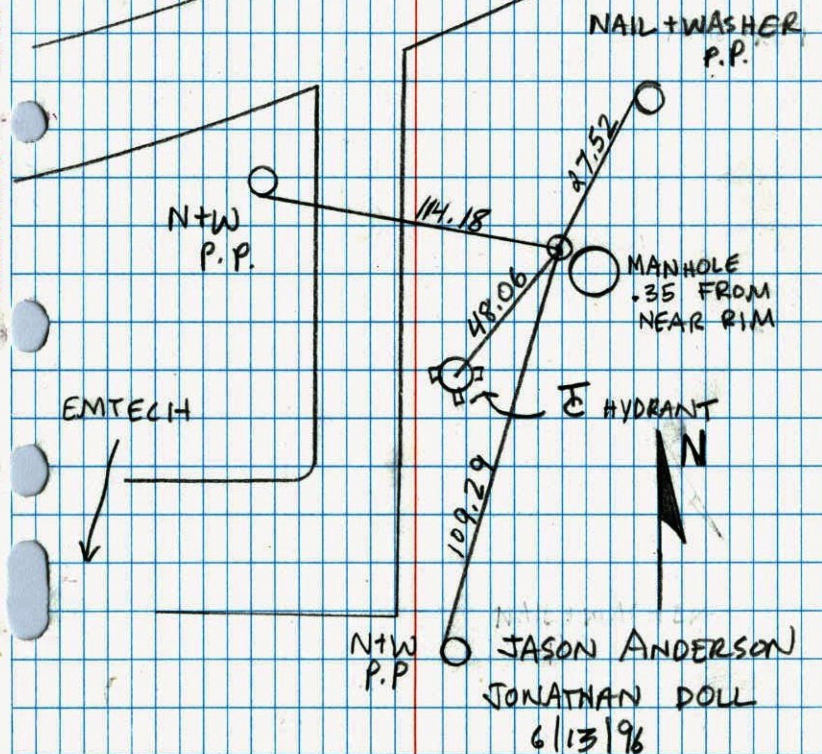 NAIL + WASHER
P.P.
27.52
N+W
P.P.
114.18
MANHOLE
.35 FROM
NEAR RIM
48.06
EMTECH
HYDRANT
N
109.29
N+W
P.P
JASON ANDERSON
JONATHAN DOLL
6/13/96